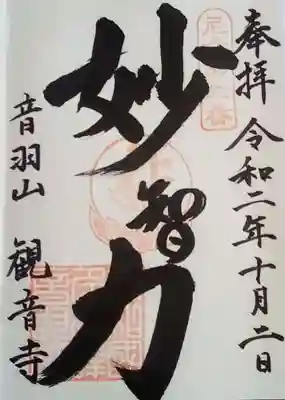 奉拝 令和二年十月二日
妙智力
音羽山 観音寺